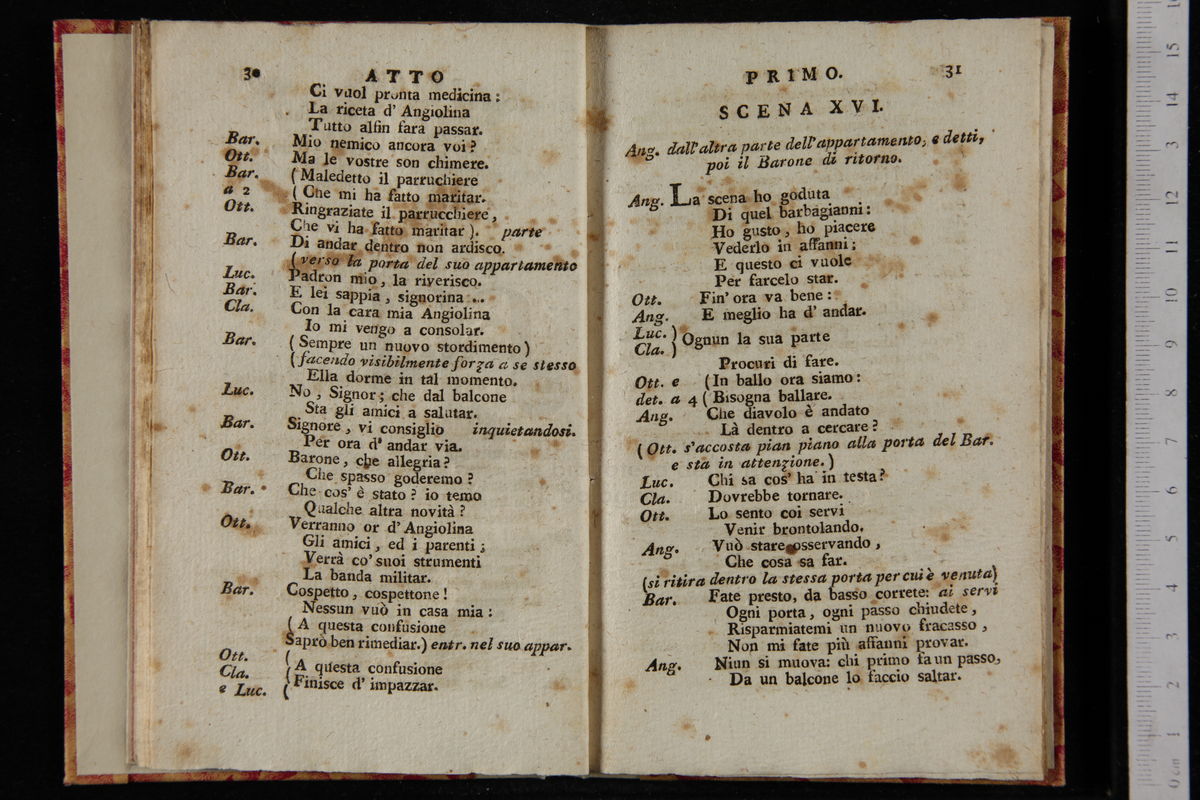 30 ATTO
Ci vuol pronta medicina:
La riceta d' Angiolina
Tutto alfin fara passar.
Bar. Mio nemico ancora voi?
Ott. Ma le vostre son chimere.
Bar. (Maledetto il parruchiere
a 2 (Che mi ha fatto maritar.
Ott. Ringraziate il parrucchiere,
Che vi ha fatto maritar). parte
Bar. Di andar dentro non ardisco.
(verso la porta del suo appartamento
Luc. Padron mio, la riverisco.
Bar. E lei sappia, signorina ...
Cla. Con la cara mia Angiolina
Io mi vengo a consolar.
Bar. (Sempre un nuovo stordimento)
(facendo visibilmente forza a se stesso
Ella dorme in tal momento.
Luc. No, Signor; che dal balcone
Sta gli amici a salutar.
Bar. Signore, vi consiglio inquietandosi.
Per ora d' andar via.
Ott. Barone, che allegria?
Che spasso goderemo?
Bar. Che cos' è stato? io temo
Qualche altra novità?
Ott. Verranno or d' Angiolina
Gli amici, ed i parenti;
Verrà co' suoi strumenti
La banda militar.
Bar. Cospetto, cospettone!
Nessun vuò in casa mia:
(A questa confusione
Saprò ben rimediar.) entr. nel suo appar.
Ott. (
Cla. (A questa confusione
e Luc. (Finisce d' impazzar.
PRIMO. 31
SCENA XVI.
Ang. dall' altra parte dell' appartamento, e detti,
poi il Barone di ritorno.
Ang. La scena ho goduta
Di quel barbagianni:
Ho gusto, ho piacere
Vederlo in affanni;
E questo ci vuole
Per farcelo star.
Ott. Fin' ora va bene:
Ang. E meglio ha d' andar.
Luc. )
Cla. ) Ognun la sua parte
Procuri di fare.
Ott. e (In ballo ora siamo:
det. a 4 (Bisogna ballare.
Ang. Che diavolo è andato
Là dentro a cercare?
(Ott. s'accosta pian piano alla porta del Bar.
e sta in attenzione.)
Luc. Chi sa cos' ha in testa?
Cla. Dovrebbe tornare.
Ott. Lo sento coi servi
Venir brontolando.
Ang. Vuò stare osservando,
Che cosa sa far.
(si ritira dentro la stessa porta per cui è venuta)
Bar. Fate presto, da basso correte: ai servi
Ogni porta, ogni passo chiudete,
Risparmiatemi un nuovo fracasso,
Non mi fate più affanni provar.
Ang. Niun si muova: chi primo fa un passo,
Da un balcone lo faccio saltar.
0 cm 1 2 3 4 5 6 7 8 9 10 11 12 13 14 15 16